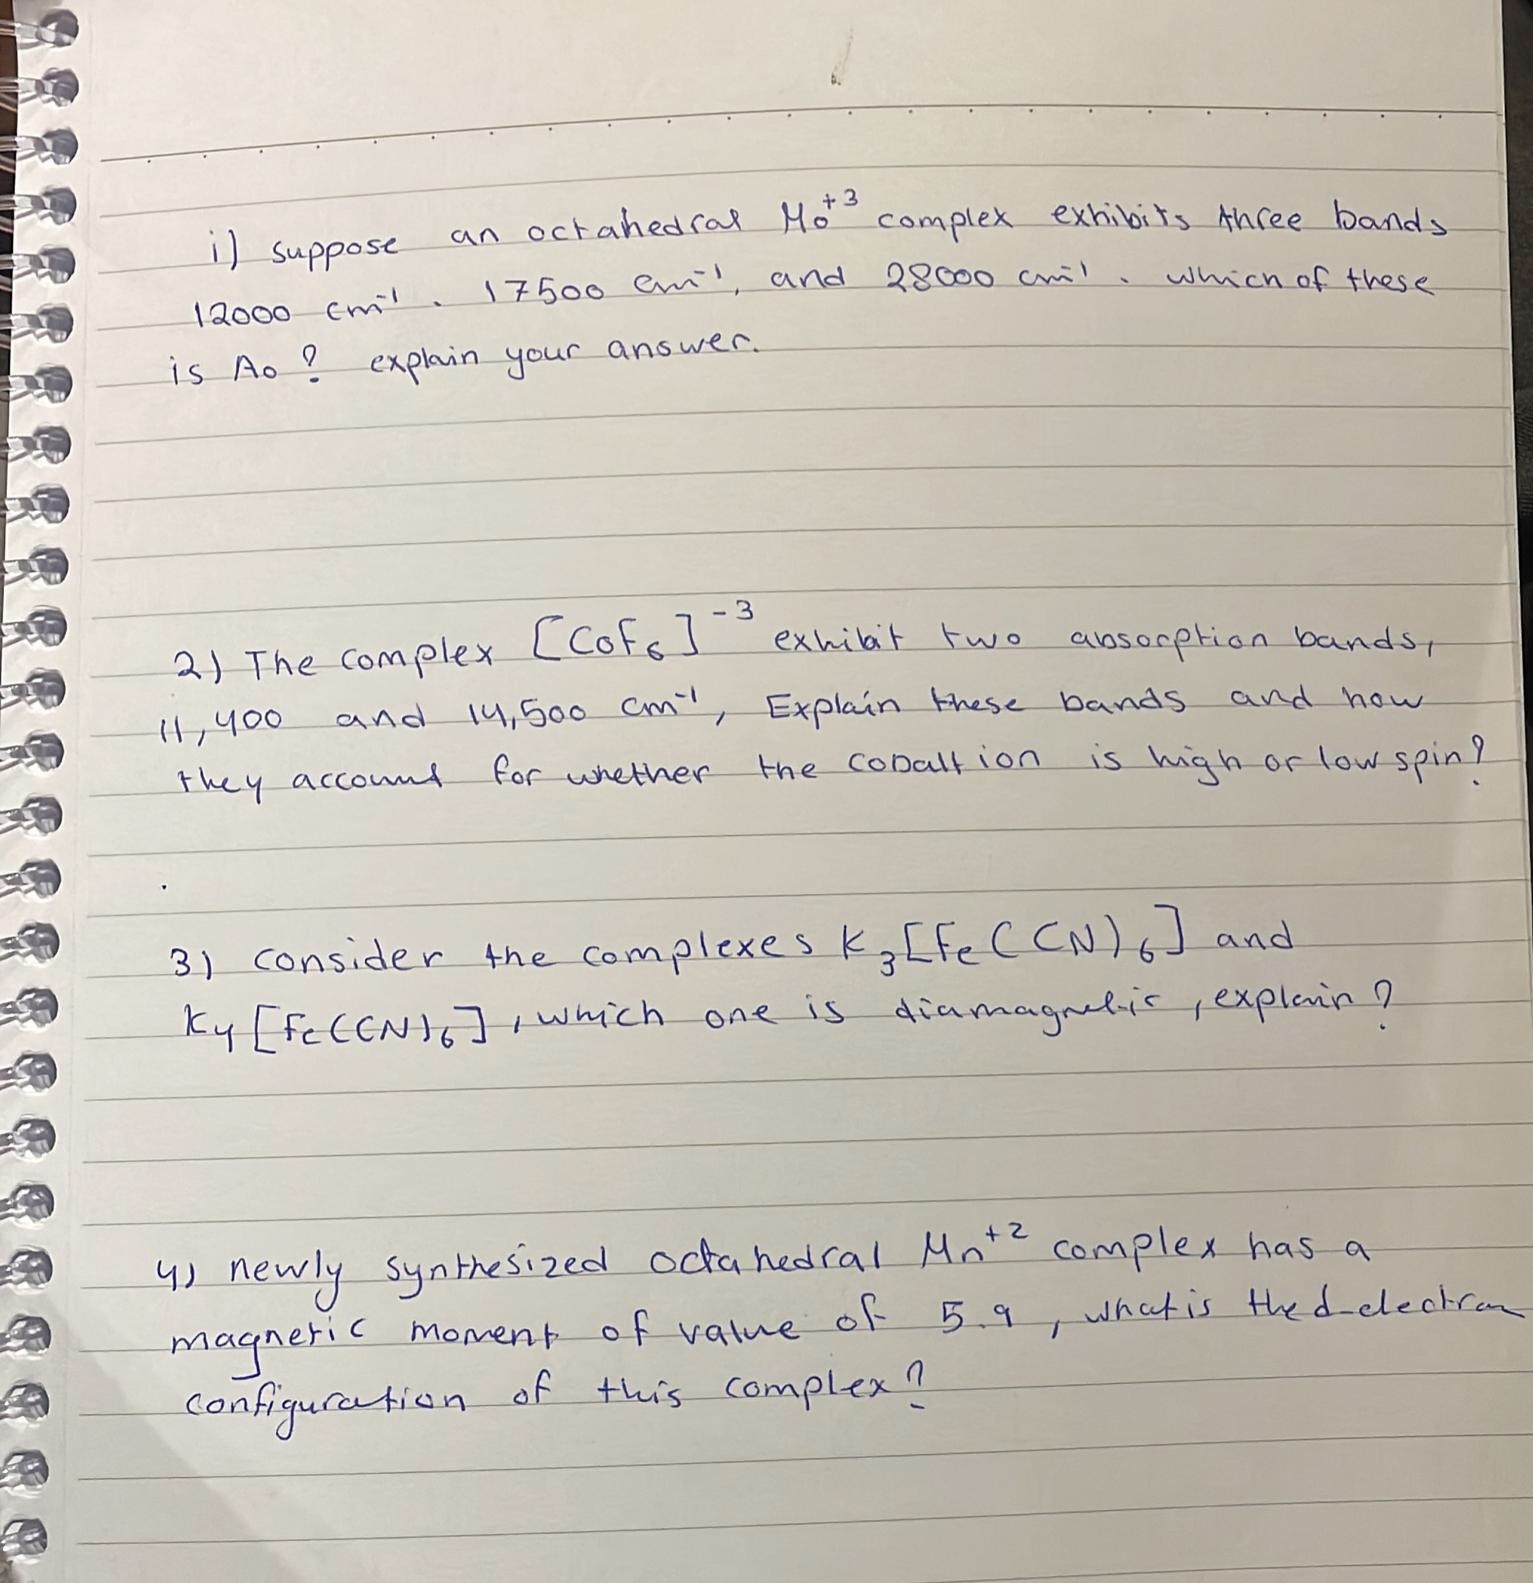 i) suppose an octahedral Mo+3 complex exhibits three bands
12000 cm-1. 17500 cm-1, and 28000 cm-1. which of these
is Ao? explain your answer.
2) The complex [CoF6]-3 exhibit two absorption bands,
11,400 and 14,500 cm-1, Explain these bands and how
they account for whether the cobalt ion is high or low spin?
3) consider the complexes K3[Fe(CN)6] and
K4[Fe(CN)6], which one is diamagnetic, explain?
4) newly synthesized octahedral Mn+2 complex has a
magnetic moment of value of 5.9, what is the d-electron
configuration of this complex?